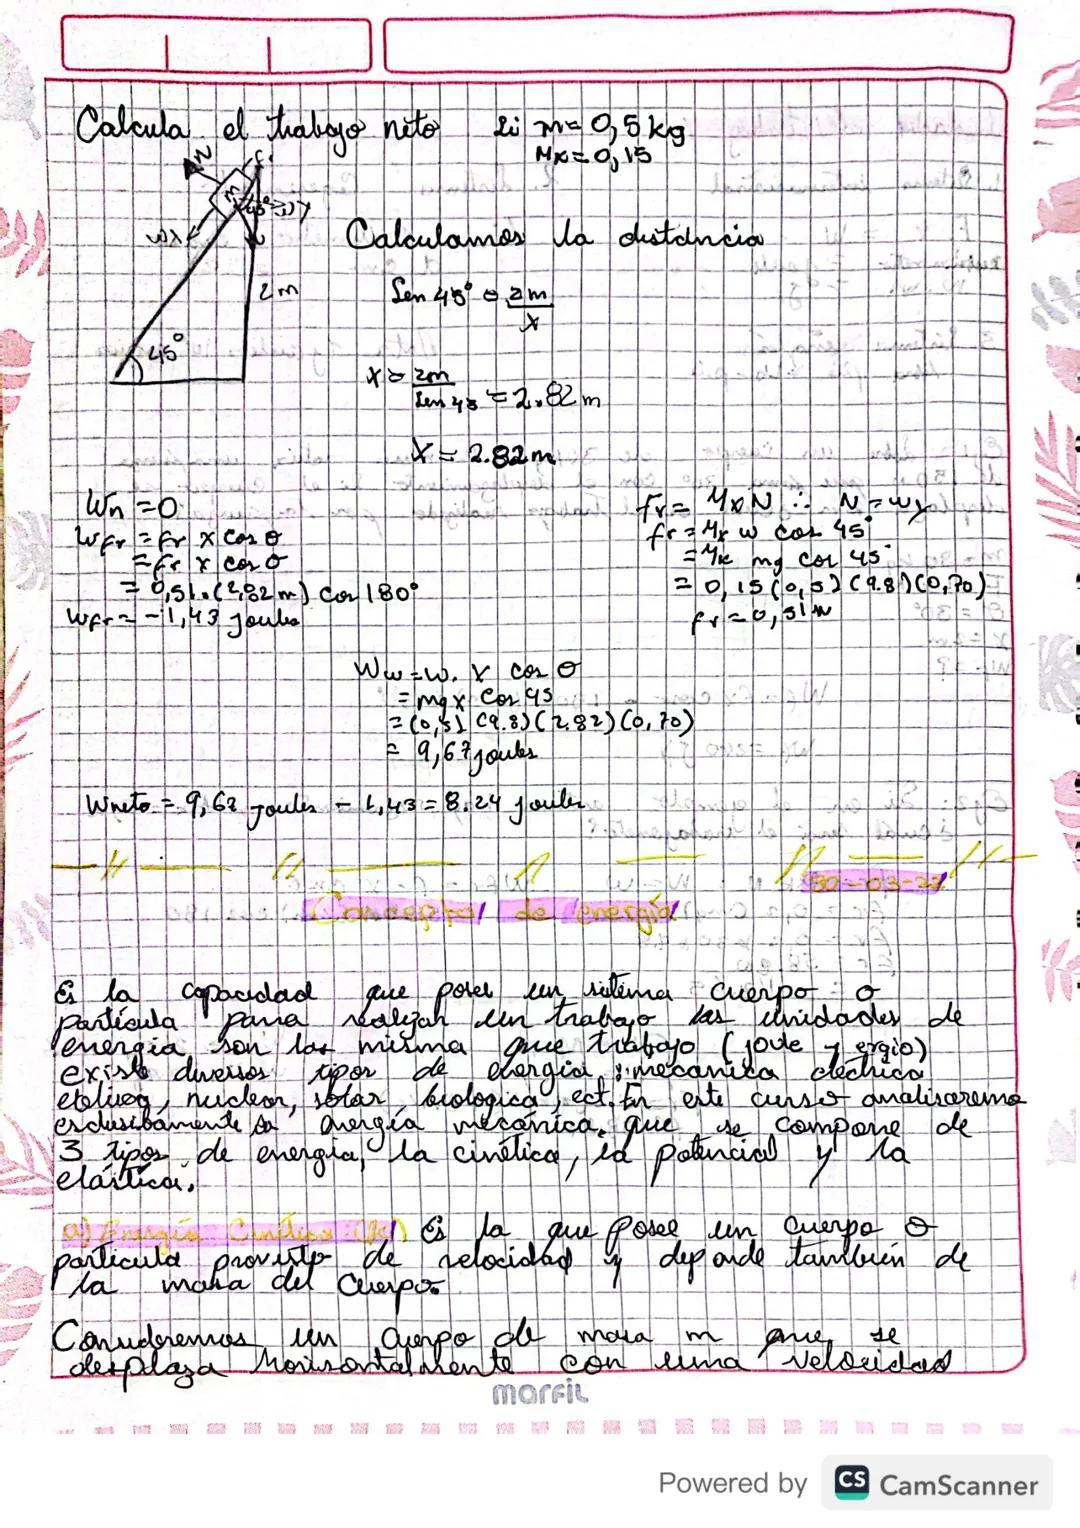 Calcula el trabajo neto si m= 0,5 kg
Mk= 0,15
N
fr
m
45°
wy
wx
w
2m
45°
Calculamos la distancia
Sen 45° = 2m/x
x = 2m/Sen 45 = 2.82 m
X = 2.82 m
Wn = 0
Wfr = fr x cos θ
= fr x cos θ
= 0,51.(2,82 m) cos 180°
Wfr = -1,43 joules
fr = Mk N ∴ N = wy
fr = Mk w cos 45°
= Mk mg cos 45°
= 0,15 (0,5) (9.8) (0,70)
fr = 0,51 N
Ww = w. x cos θ
= mg x cos 45
= (0,5) (9.8) (2.82) (0,70)
= 9,67 joules
Wneto = 9,67 joules - 1,43 = 8.24 joules
30-03-22
Concepto de energía
Es la capacidad que posee un sistema cuerpo o
partícula para realizar un trabajo las unidades de
energia son las misma que trabajo (joule y ergio)
existe diversos tipos de energia: mecánica electrica
eolica, nuclear, solar, biologica, ect. En este curso analisaremo
exclusibamente la energía mecánica, que se compone de
3 tipos de energia, la cinética, la potencial y la
elástica.
a) Energía Cinética (K) Es la que posee un cuerpo o
partícula provisto de velocidad y depende también de
la masa del cuerpo.
Consideremos un cuerpo de masa m que se
desplaza horisontalmente con una velocidad
marfil
Powered by CS CamScanner